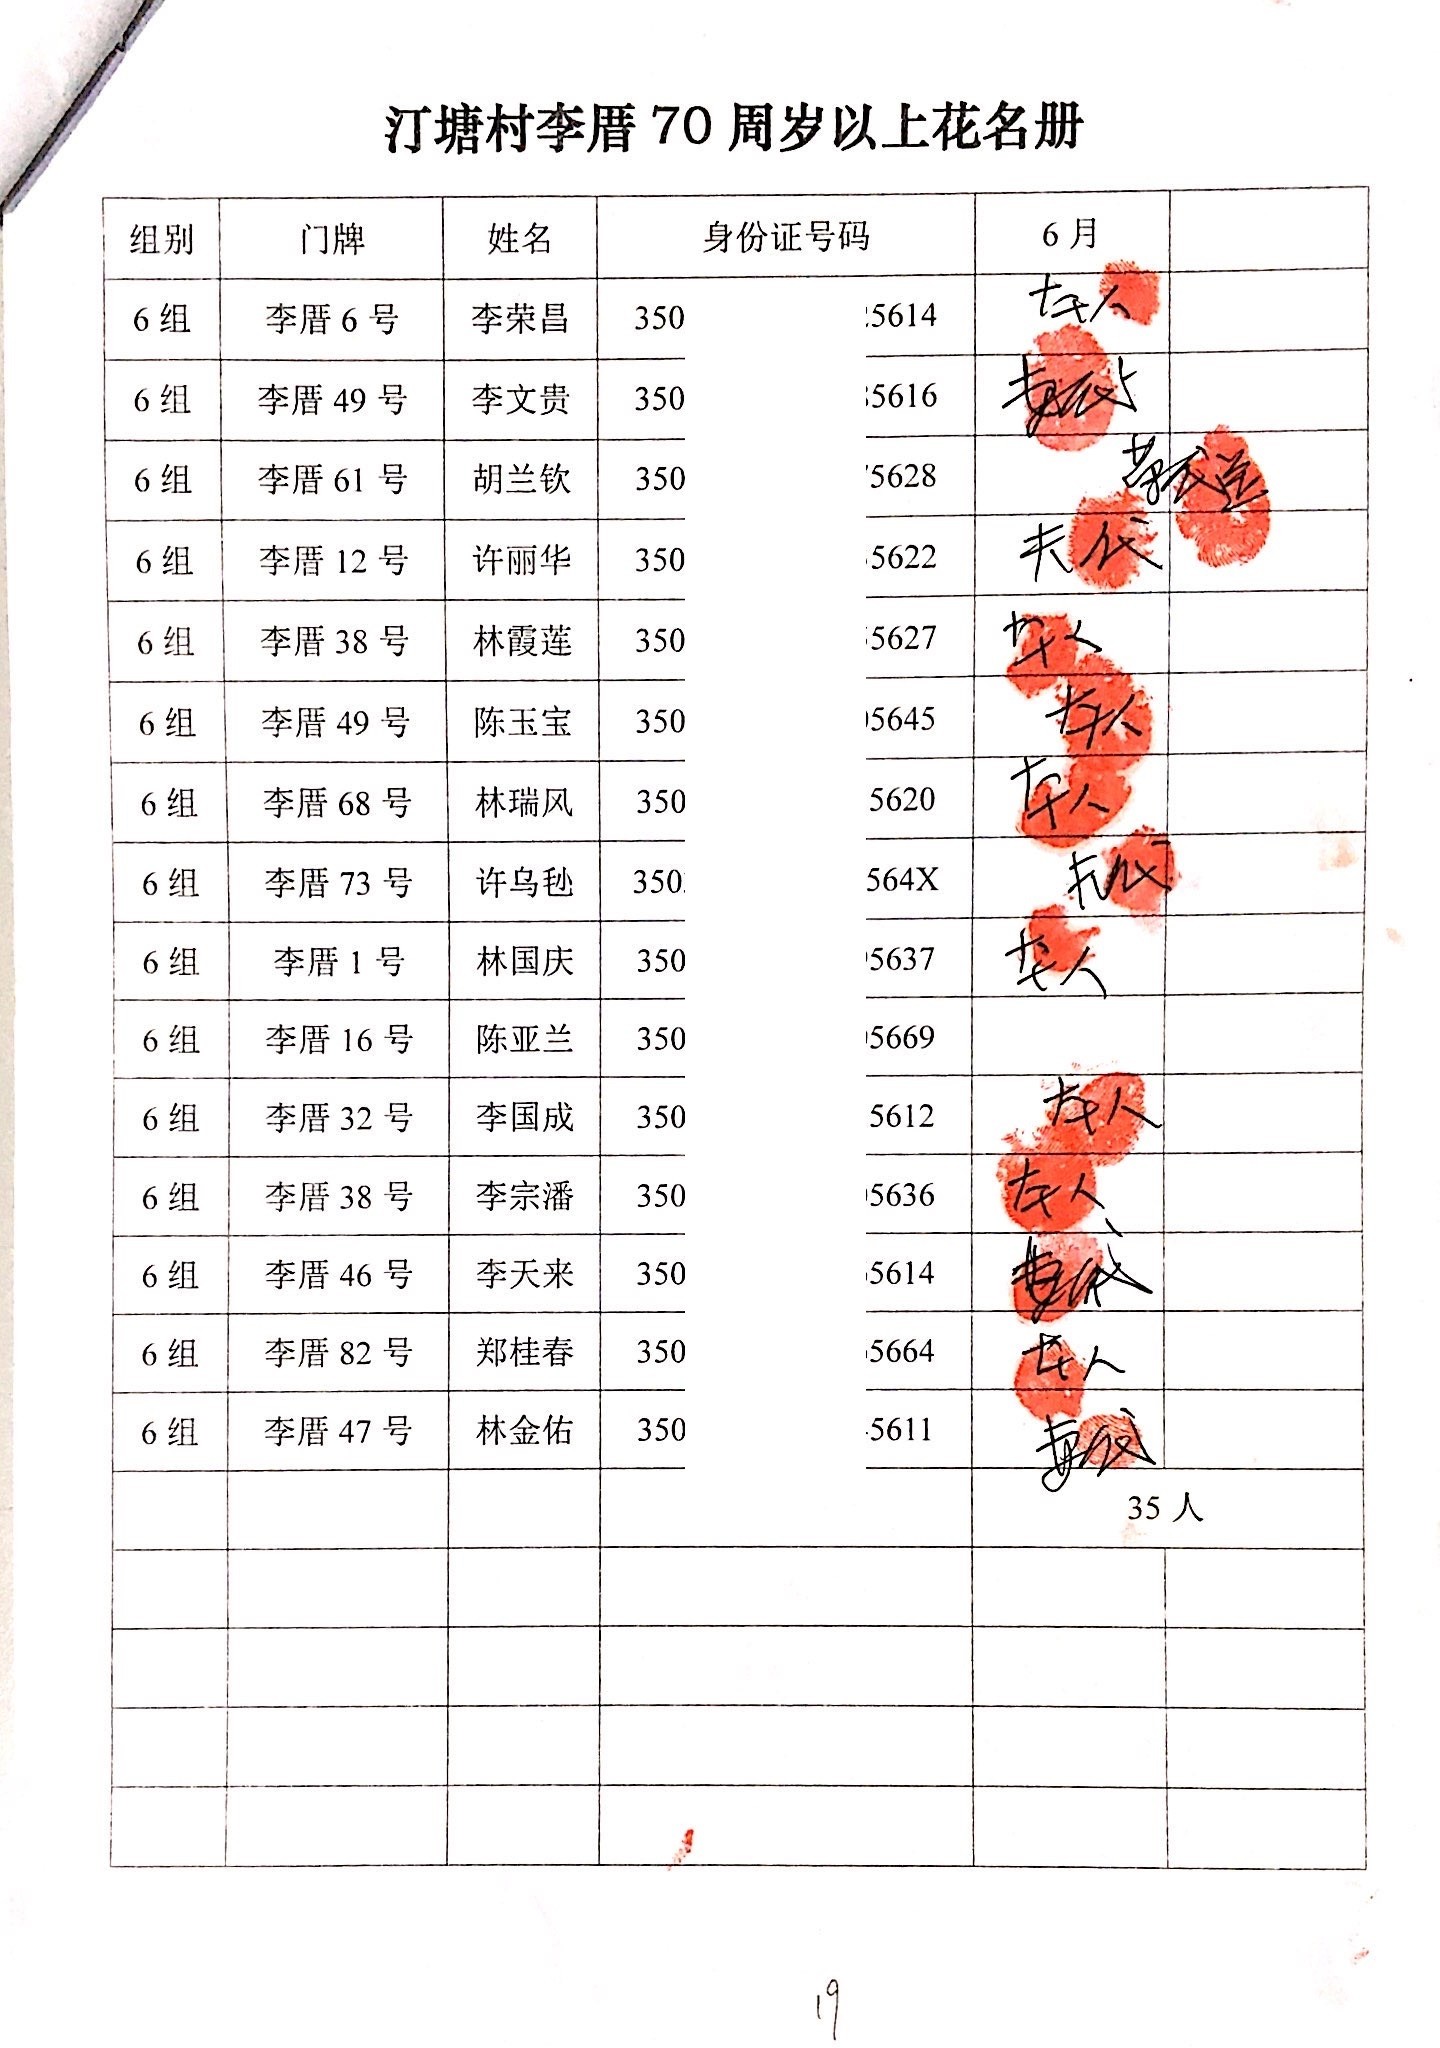 汀塘村李厝70周岁以上花名册
组别 门牌 姓名 身份证号码 6月
6组 李厝6号 李荣昌 350 5614 本人
6组 李厝49号 李文贵 350 5616
6组 李厝61号 胡兰钦 350 5628
6组 李厝12号 许丽华 350 5622 夫代
6组 李厝38号 林霞莲 350 5627 本人
6组 李厝49号 陈玉宝 350 5645 本人
6组 李厝68号 林瑞风 350 5620 本人
6组 李厝73号 许乌毪 350 564X 夫代
6组 李厝1号 林国庆 350 5637 本人
6组 李厝16号 陈亚兰 350 5669
6组 李厝32号 李国成 350 5612 本人
6组 李厝38号 李宗潘 350 5636 本人
6组 李厝46号 李天来 350 5614
6组 李厝82号 郑桂春 350 5664 本人
6组 李厝47号 林金佑 350 5611
35人
19